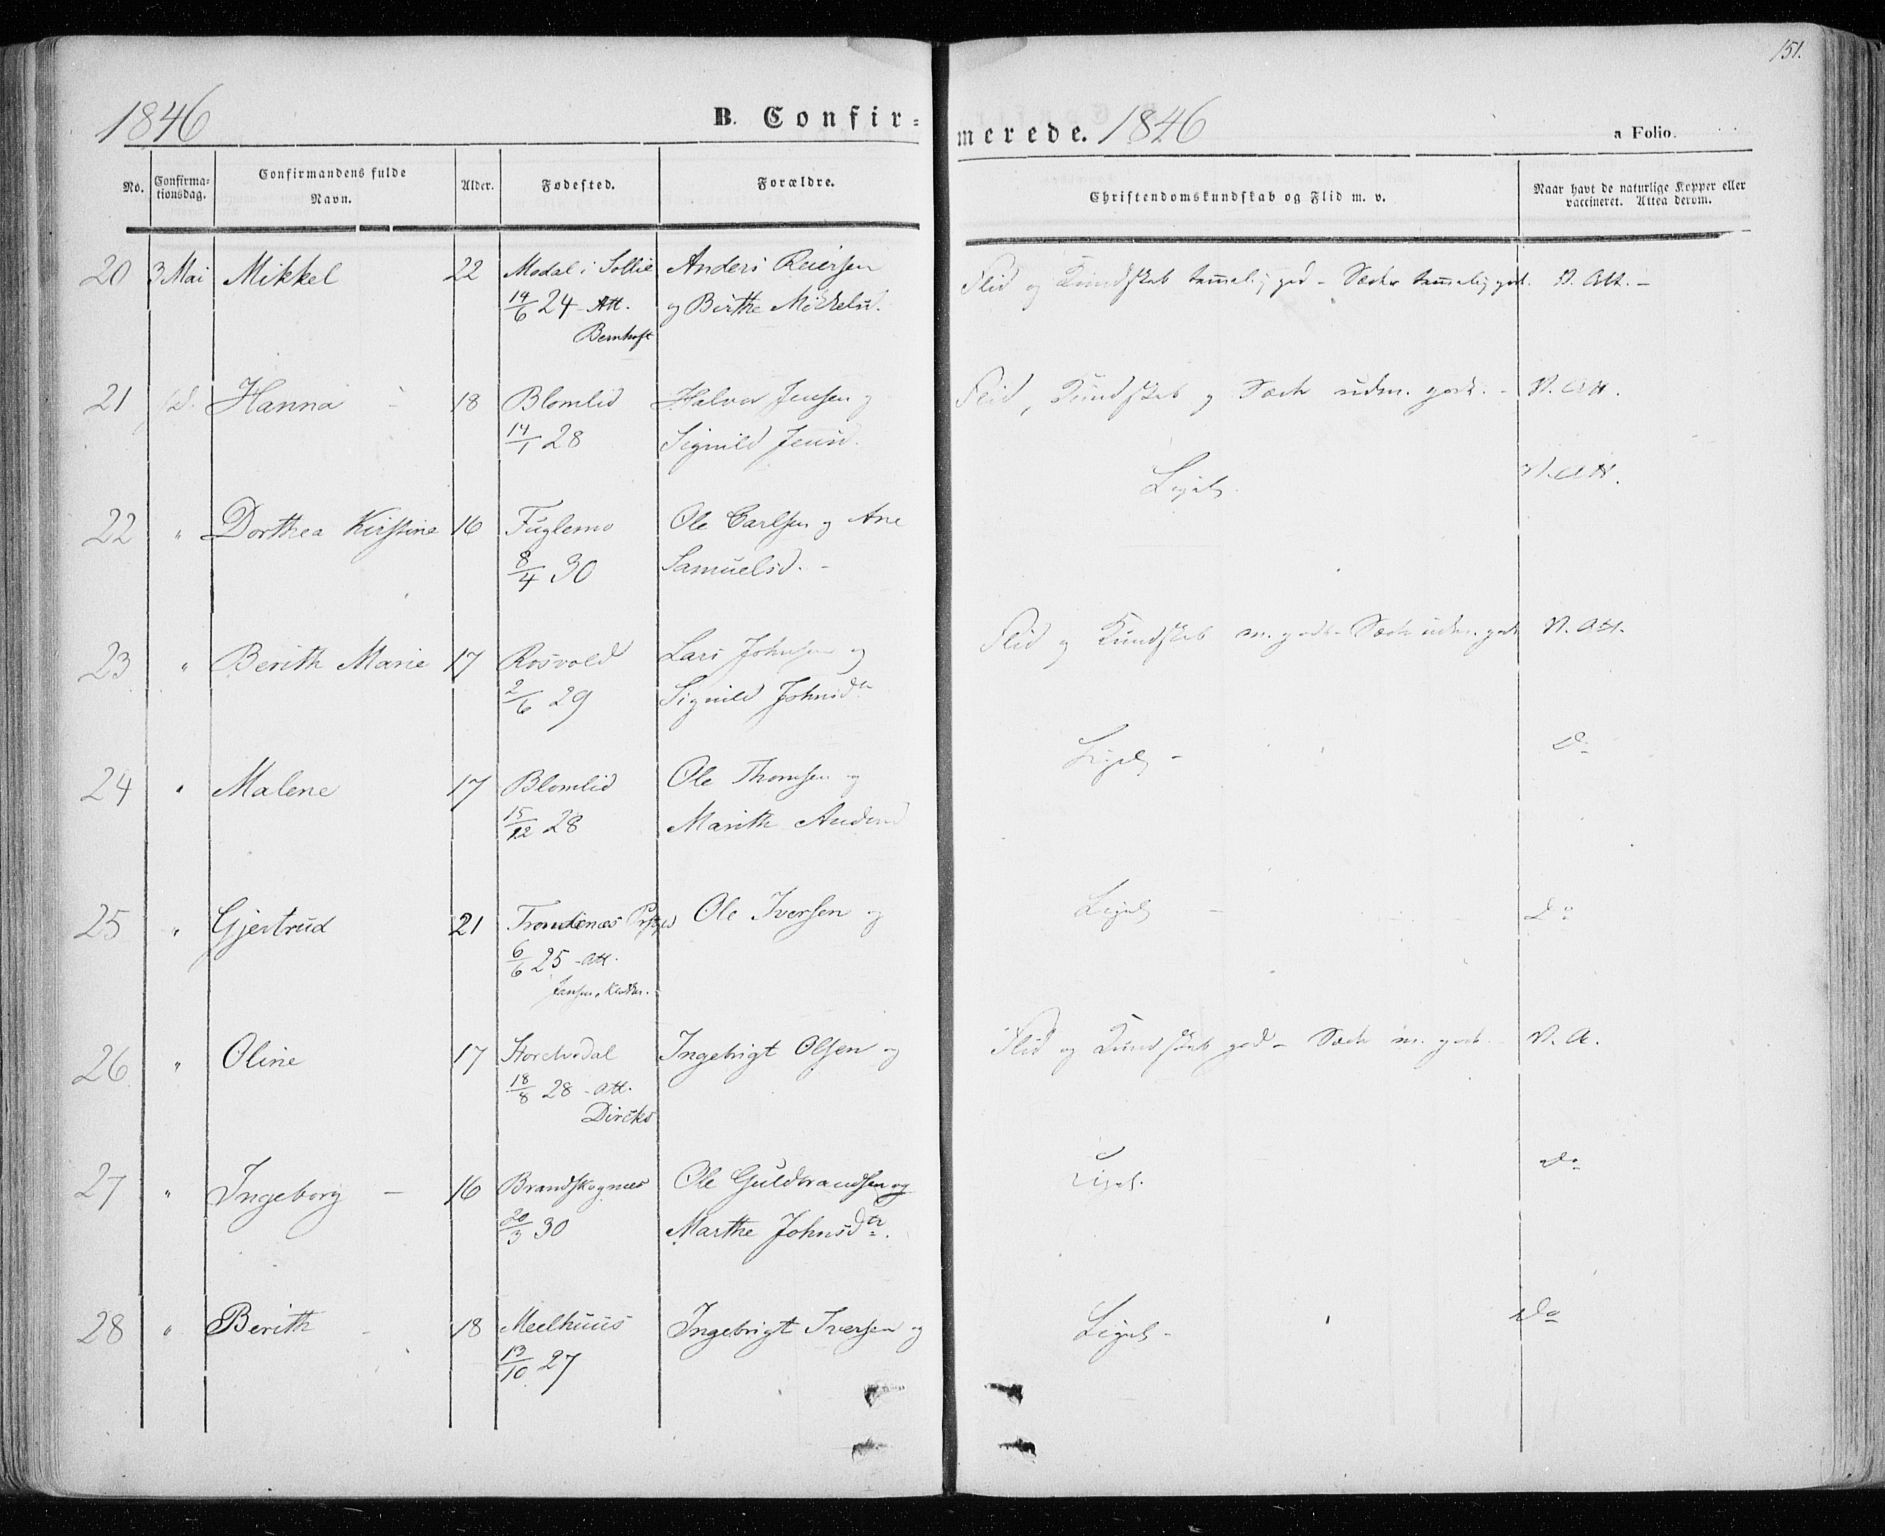 151.
1846 B. Confir-merede. 1846 a Folio.
No. Confirmationsdag. Confirmandens fulde Navn. Alder. Fødested. Forældre. Christendomskundskab og Flid m. v. Naar havt de naturlige Kopper eller vaccineret. Attea derom.
20 3 Mai Mikkel 22 Modal i Sollie Anders Reiersen Flid og Kundskab tammelig god - Sæder tammelig god. V. Att. -
19/6 24 Att. og Birthe Mickelsd.
Bernhoft
21 d. Hanna - 18 Blomlid Halvor Jensen og Flid, Kundskab og Sæder udm. gode. - V. Att.
14/1 28 Signild Jensd.
22 " Dorthea Kirstine 16 Fuglemo Ole Carlsen og Ane Ligel. V. Att.
8/4 30 Samuelsd. -
23 " Berith Marie 17 Rosvold Lars Johnsen og Flid og Kundskab m. gode - Sæder udm. gode V. Att.
2/6 29 Signild Johnsdtr
24 " Malene 17 Blomlid Ole Thomsen og Ligel. - Do
15/12 28 Marith Andersd
25 " Gjertrud 21 Trondenæs Prstgjd Ole Iversen og Ligel. - Do
6/6 25 - Att.
26 " Oline 17 Ingebrigt Olsen og Flid og Kundskab god - Sæder m. gode - V. A.
18/8 28 - Att.
Dircks
27 " Ingeborg - 16 Brandskognes Ole Guldbrandsen og Ligel. Do
20/3 30 Marthe Johnsdtr.
28 " Berith - 18 Meelhuus Ingebrigt Iversen og Ligel. - Do
13/10 27